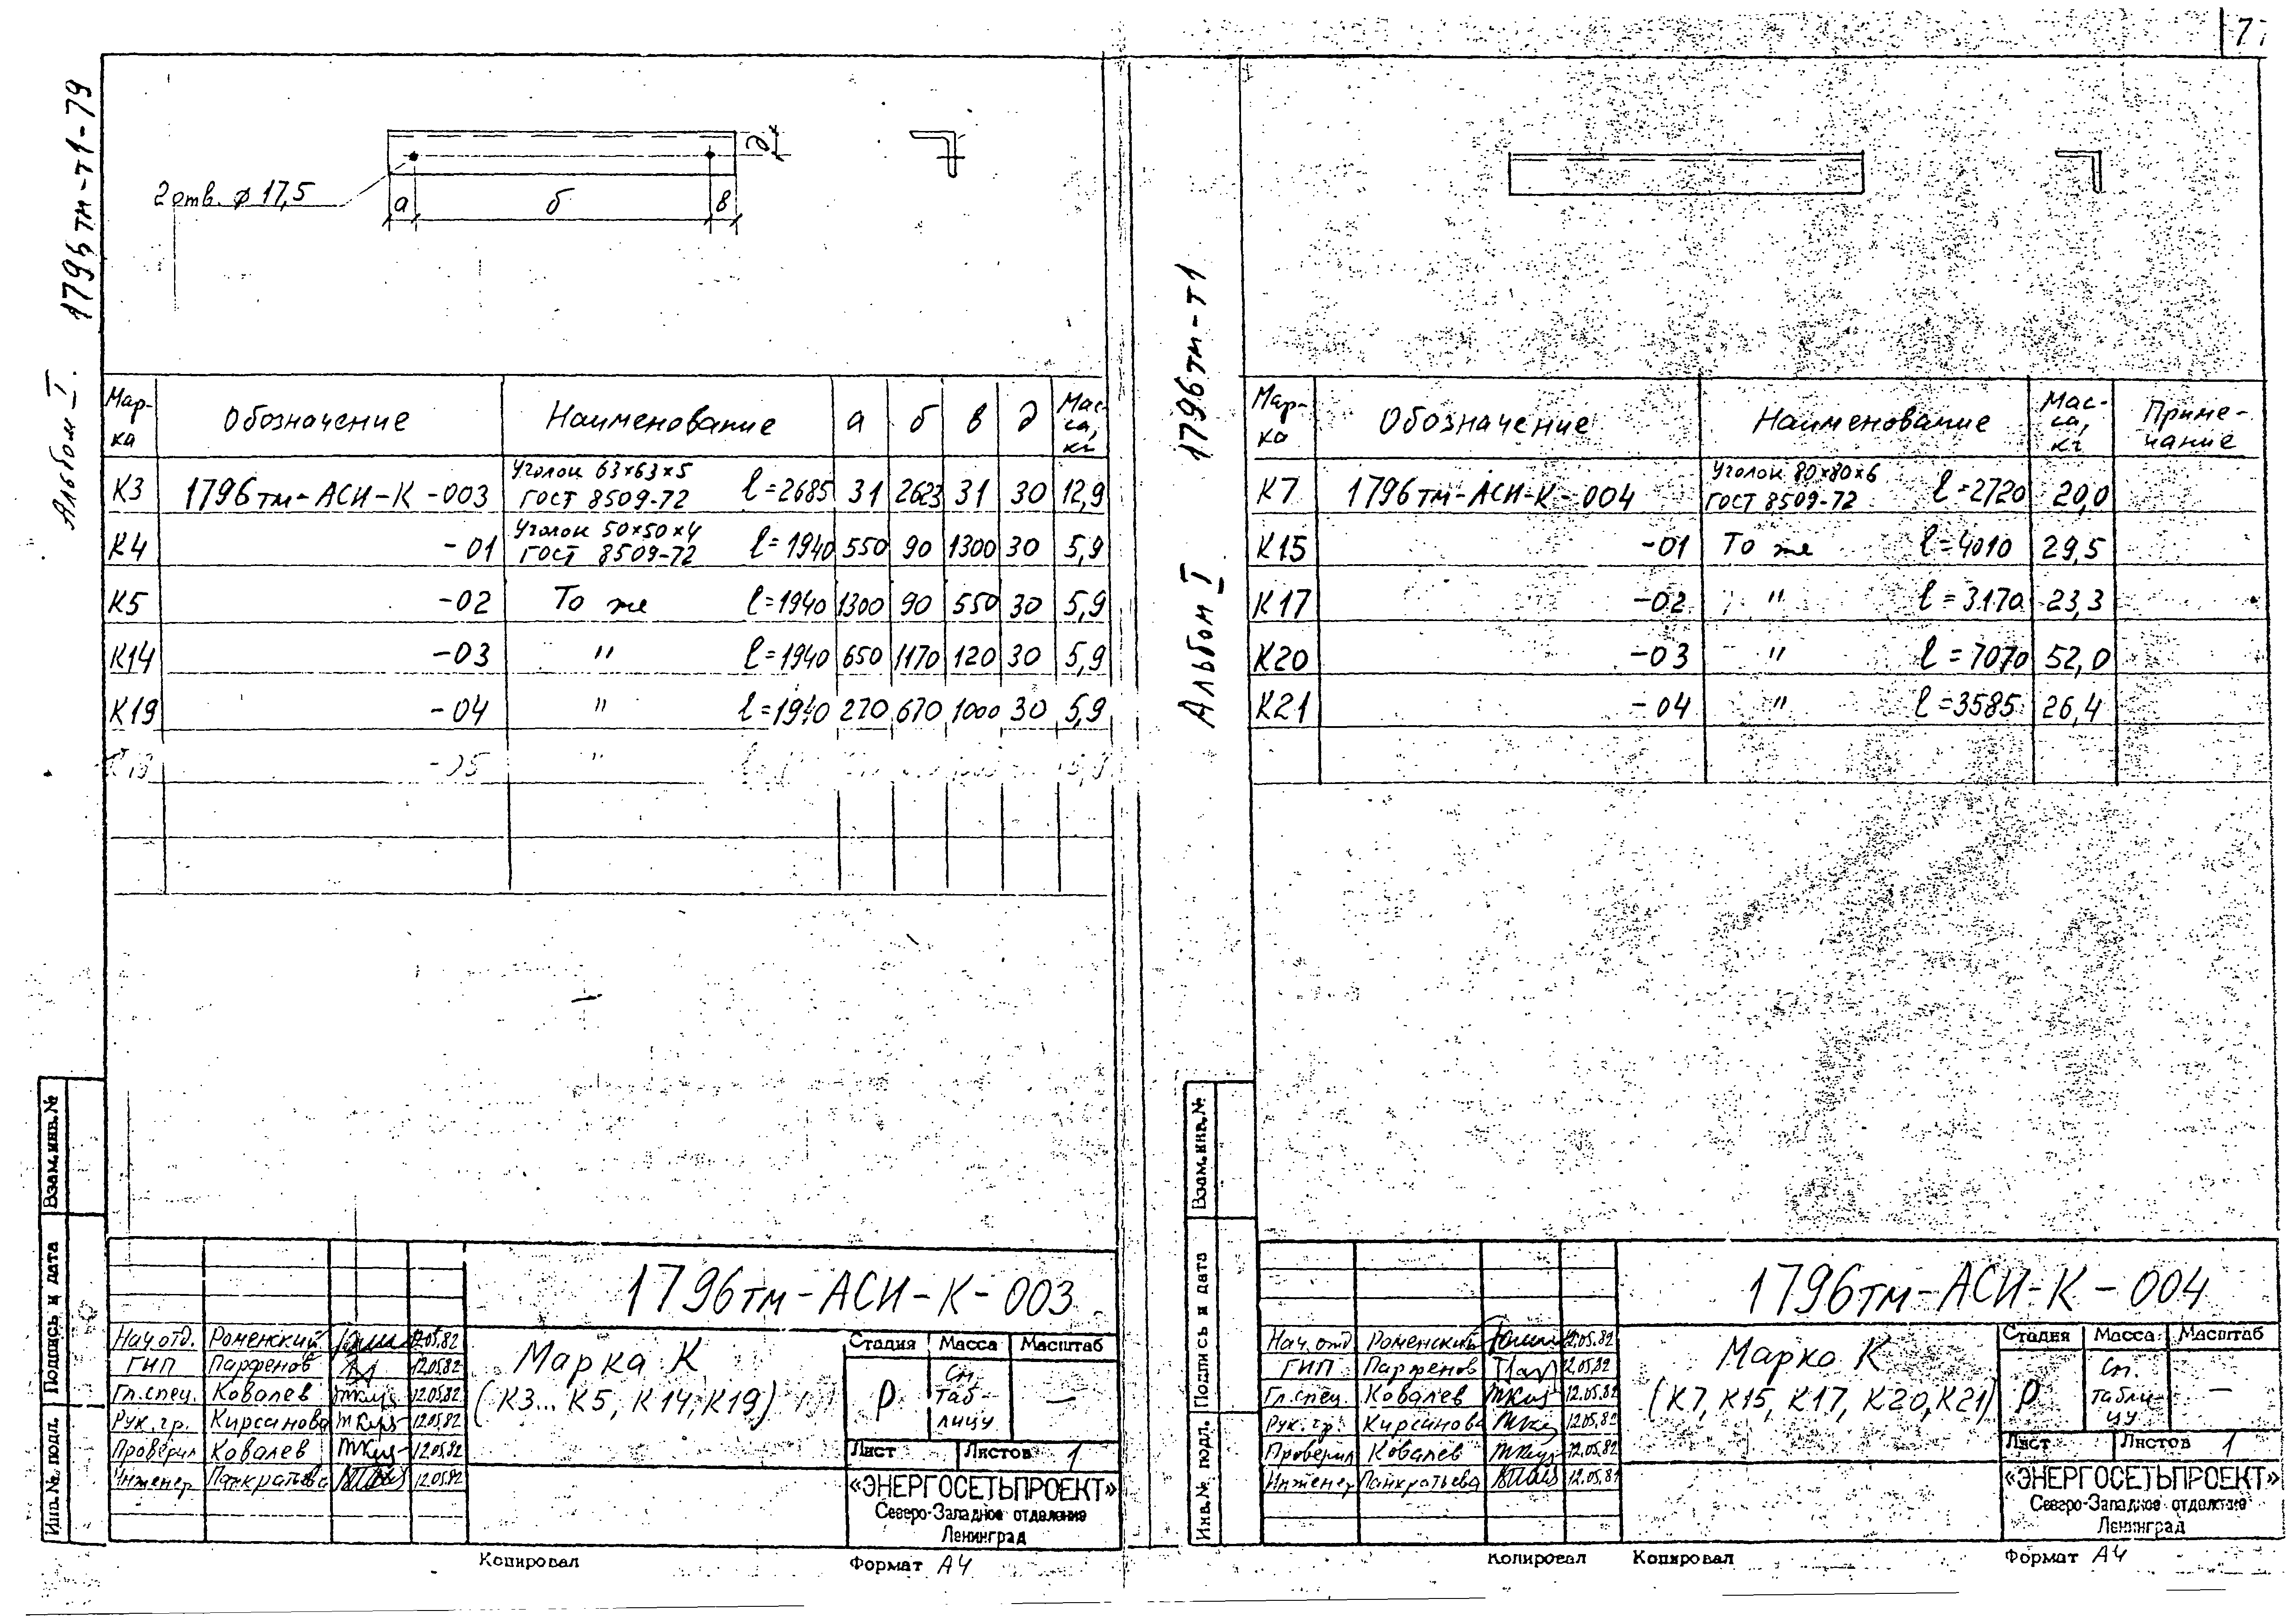 7
1796тм-т1-79
Альбом I.
2 отв. ϕ 17,5
а б в д
Мар-ка Обозначение Наименование а б в д Мас-са, кг
К3 1796тм-АСИ-К-003 Уголок 63×63×5 ГОСТ 8509-72 ℓ=2685 31 2623 31 30 12,9
К4 -01 Уголок 50×50×4 ГОСТ 8509-72 ℓ=1940 550 90 1300 30 5,9
К5 -02 То же ℓ=1940 1300 90 550 30 5,9
К14 -03 " ℓ=1940 650 1170 120 30 5,9
К19 -04 " ℓ=1940 270 670 1000 30 5,9
-05 "
Взам.инв.№
Подпись и дата
Инв.№ подл.
1796тм-АСИ-К-003
Нач.отд. Роменский 12.05.82
ГИП Парфенов 12.05.82
Гл.спец. Ковалев 12.05.82
Рук.гр. Кирсанова 12.05.82
Проверил Ковалев 12.05.82
Инженер Панкратьева 12.05.82
Марка К
(К3...К5, К14, К19)
Стадия Масса Масштаб
Р См. таб-лицу —
Лист Листов 1
«ЭНЕРГОСЕТЬПРОЕКТ»
Северо-Западное отделение
Ленинград
Копировал
Формат А4
1796тм-т1
Альбом I
Мар-ка Обозначение Наименование Мас-са, кг Приме-чание
К7 1796тм-АСИ-К-004 Уголок 80×80×6 ГОСТ 8509-72 ℓ=2720 20,0
К15 -01 То же ℓ=4010 29,5
К17 -02 " ℓ=3170 23,3
К20 -03 " ℓ=7070 52,0
К21 -04 " ℓ=3585 26,4
Взам.инв.№
Подпись и дата
Инв.№ подл.
1796тм-АСИ-К-004
Нач.отд Роменский 12.05.82
ГИП Парфенов 12.05.82
Гл.спец. Ковалев 12.05.82
Рук.гр. Кирсанова 12.05.82
Проверил Ковалев 12.05.82
Инженер Панкратьева 12.05.82
Марка К
(К7, К15, К17, К20, К21)
Стадия Масса Масштаб
Р См. табли-цу —
Лист Листов 1
«ЭНЕРГОСЕТЬПРОЕКТ»
Северо-Западное отделение
Ленинград
Копировал Копировал
Формат А4